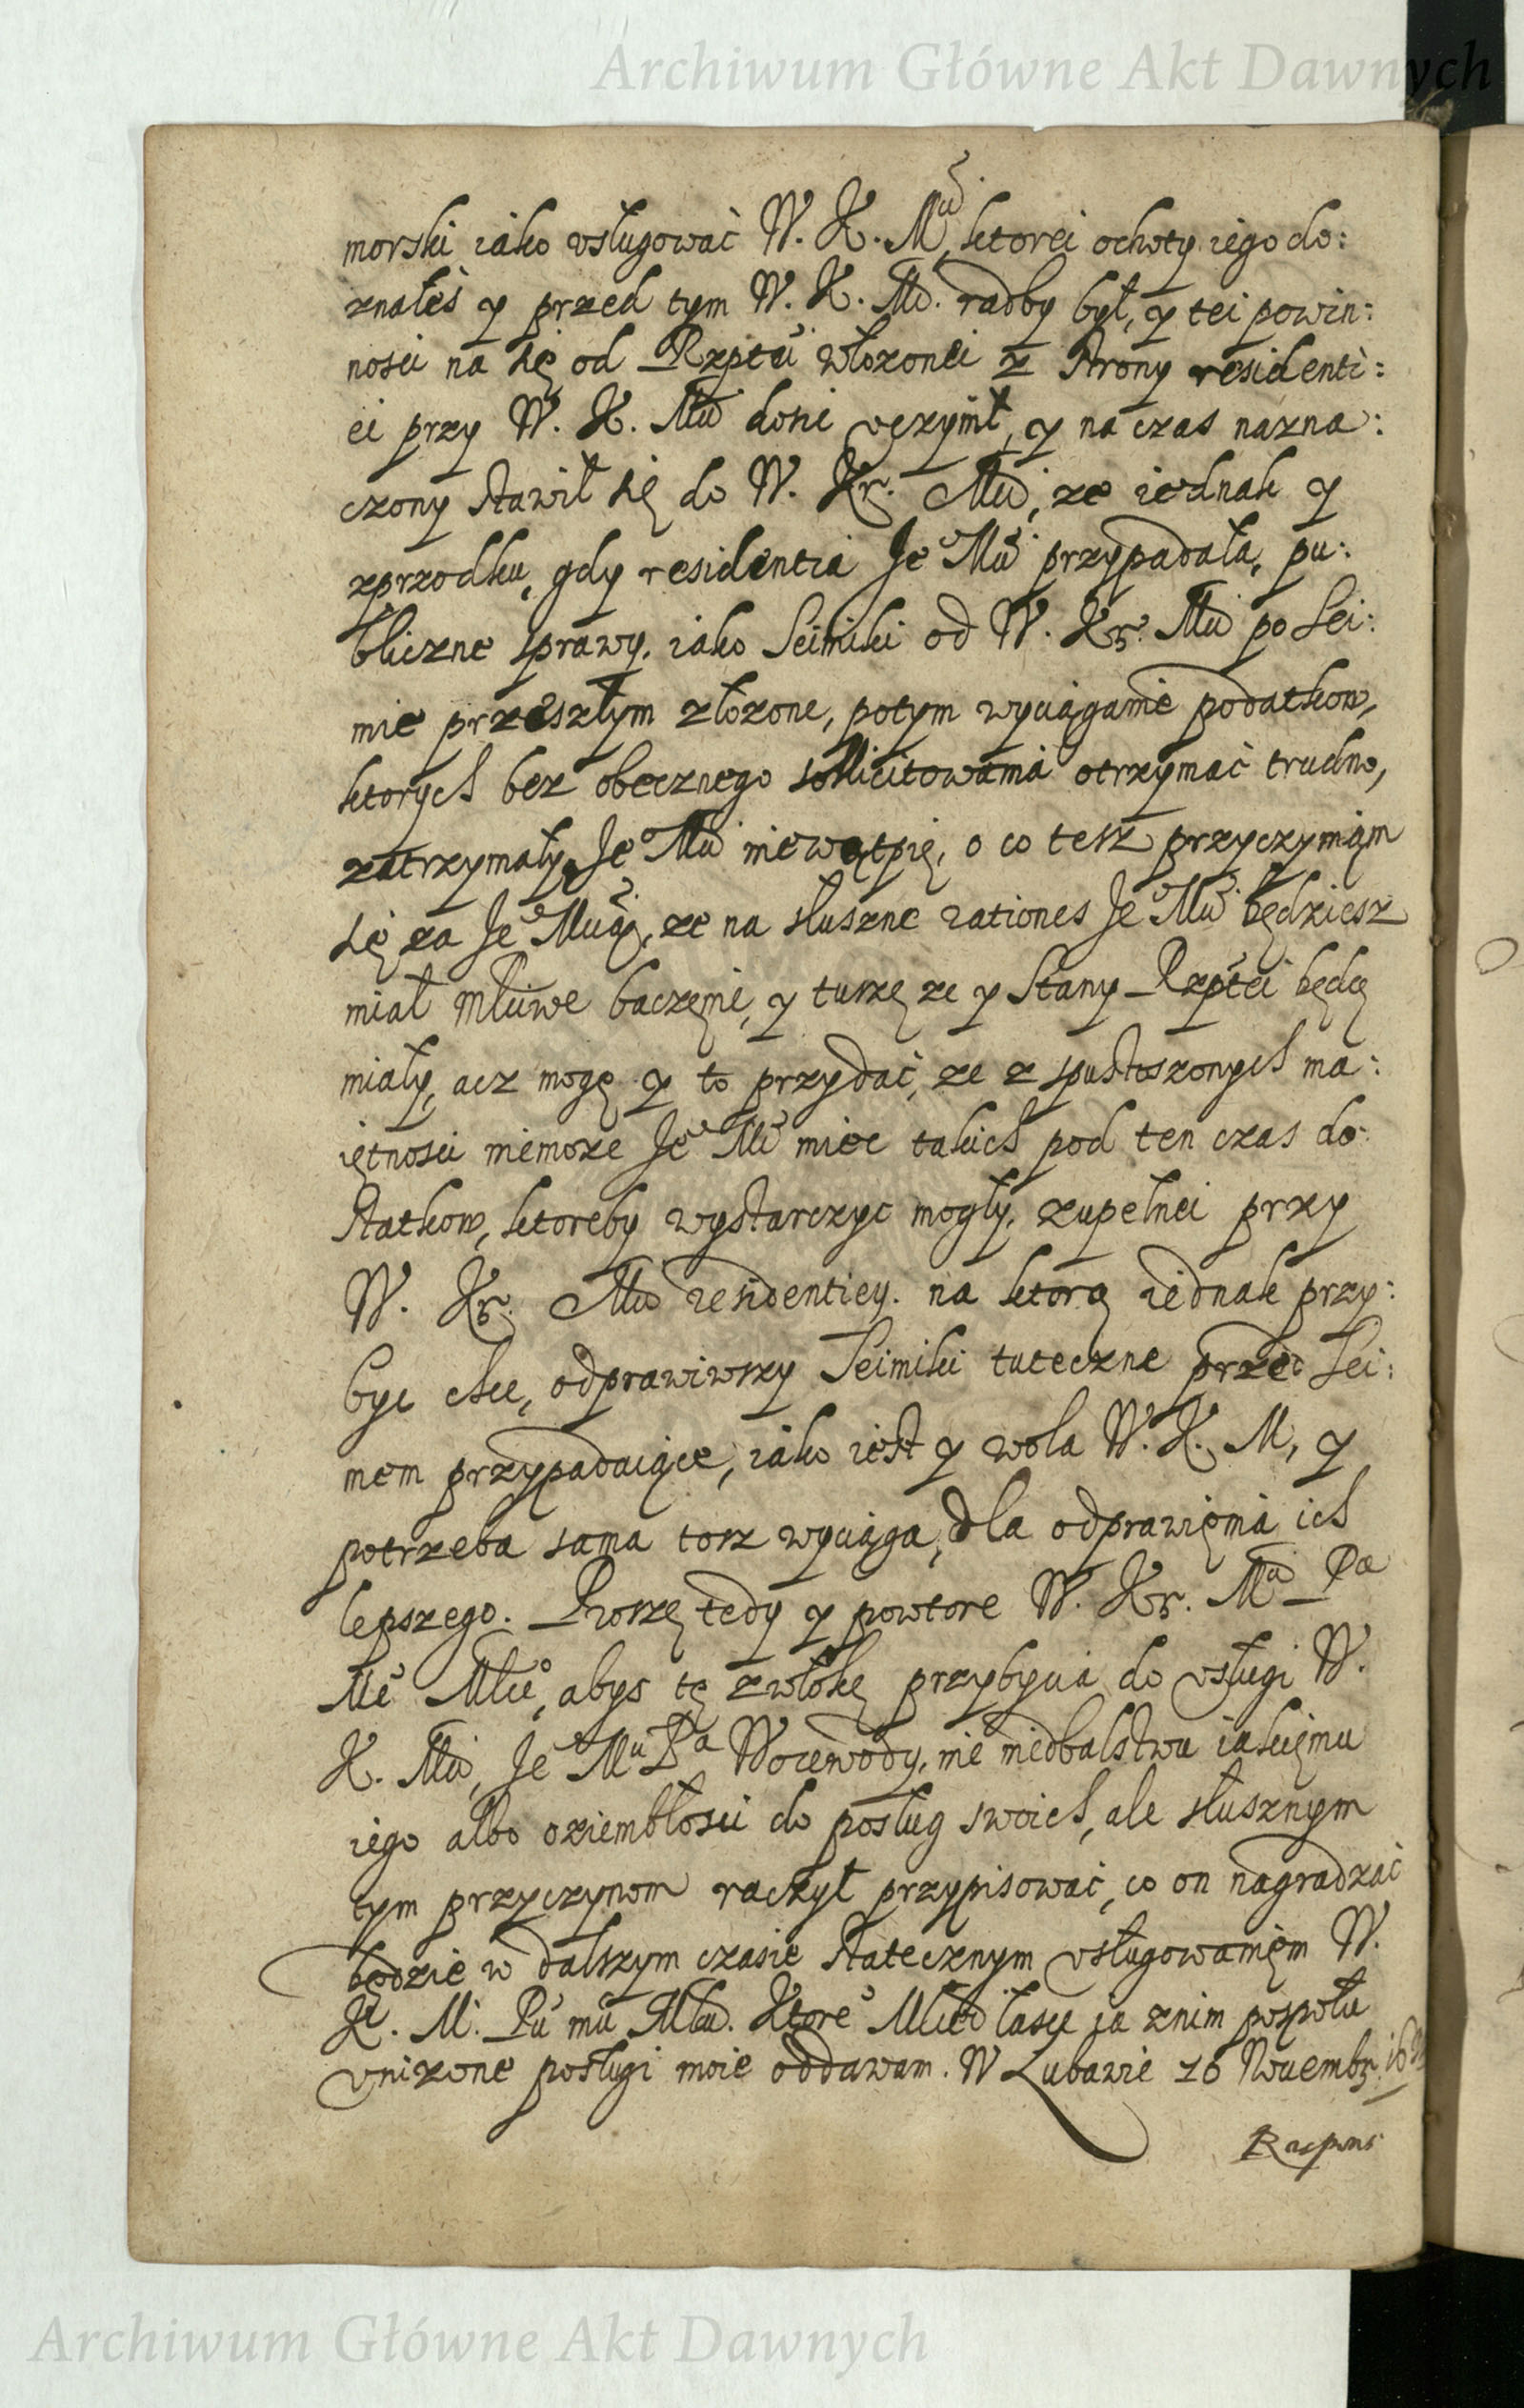 Archiwum Główne Akt Dawnych
morski iáko vsługowáć W. K. Mci, ktorei ochoty iego do:
znałeś y przed tym W. K. Mci. radby był, y tei powin:
nosci na się od Rzptei włozonei z strony residenti:
ei przy W. K. Mci dosić vczynił, y na czas nazna:
czony stawił się do W. Kr. Mci, ze iednak y
zprzodku, gdy residentia Je° Mci przypadała, pu:
bliczne sprawy. iako Seimiki od W. Kr. Mci po Sei:
mie przeszłym złozone, potym wyciąganie podatkow,
ktorych bez obecznego sollicitowania otrzymać trudno,
zatrzymały Je° Mci niewątpię, o co tesz przyczyniam
się za Je° Mcią, ze na słuszne rationes Je° Mci będziesz
miał Mciwe baczenie, y tuszę ze y Stany Rzptei będą
miały, acz mogę y to przydać, ze z spustoszonych ma:
iętnosci niemoze Je° Mć miec takich pod ten czas do:
statkow, ktoreby wystarczyc mogły, zupełnei przy
W. Kr. Mci residentiey. na ktorą iednak przy:
być chce, odprawiwszy Seimiki tuteczne przed Sei:
mem przypadaiące, iáko iest y wola W. K. M, y
potrzeba sama tosz wyciąga, dla odprawienia ich
lepszego. Proszę tedy y powtore W. Kr. Mci Pa
Me° Mciw°, abys tę zwłokę przybycia do vsługi W.
K. Mci, Je° Mci Pa Woiewody, nie niedbalstwu iakiemu
iego albo oziembłosci do posług swoich, ale słusznym
tym przyczynom raczył przypisowáć, co on nagradzáć
będzie w dalszym czasie statecznym vsługowaniem W.
K. M. Pu mu Mciw. Ktore° Mciwei łasce ia znim pospołu
vnizone posługi moie oddawam. W Lubawie 16 Nouembr.
Respons
Archiwum Główne Akt Dawnych